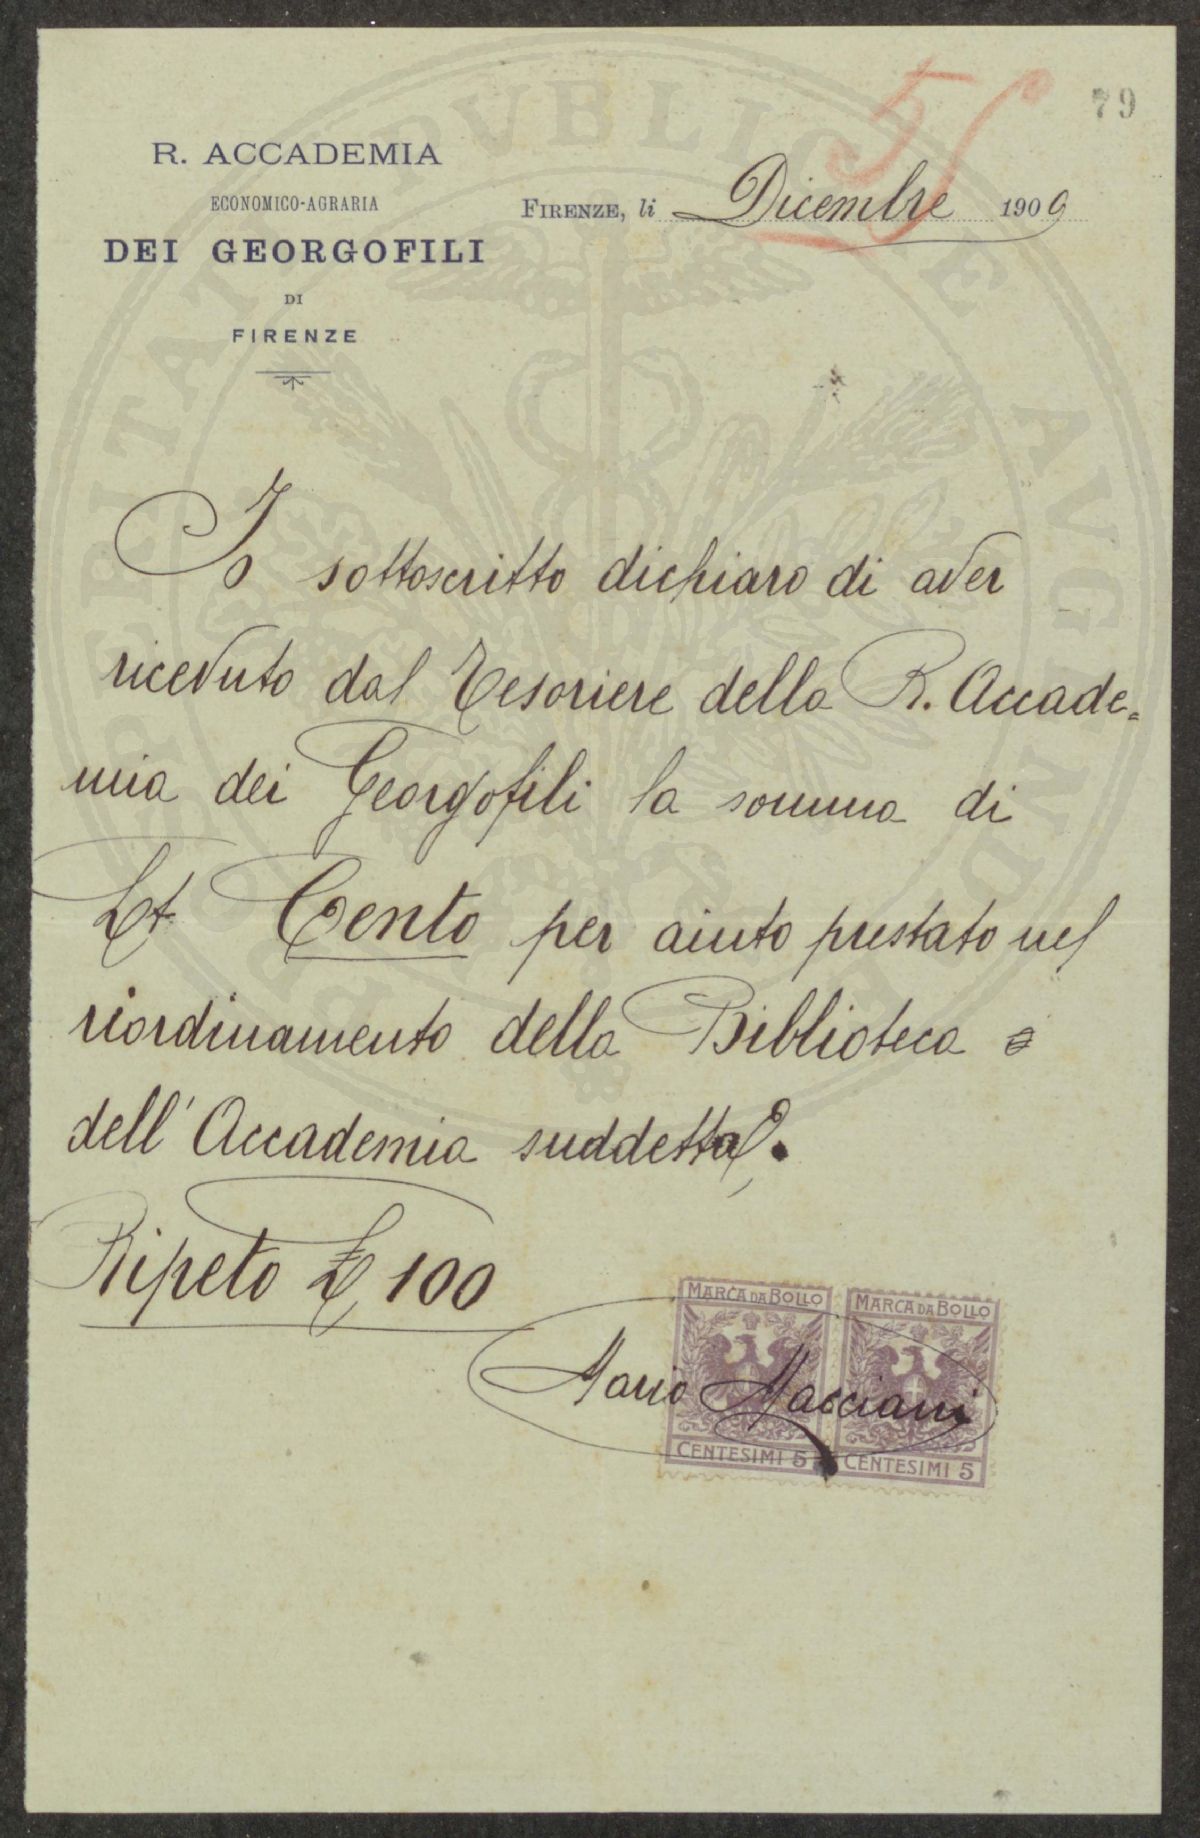 79
55
R. ACCADEMIA
ECONOMICO-AGRARIA
DEI GEORGOFILI
DI
FIRENZE
FIRENZE, li Dicembre 1909
Io sottoscritto dichiaro di aver
ricevuto dal Tesoriere della R. Accade=
mia dei Georgofili la somma di
Lt Cento per aiuto prestato nel
riordinamento della Biblioteca
dell'Accademia suddetta.
Ripeto L, 100
MARCA DA BOLLO MARCA DA BOLLO
Mario
CENTESIMI 5 CENTESIMI 5
PROSPERITATI PVBLICAE AVGENDAE